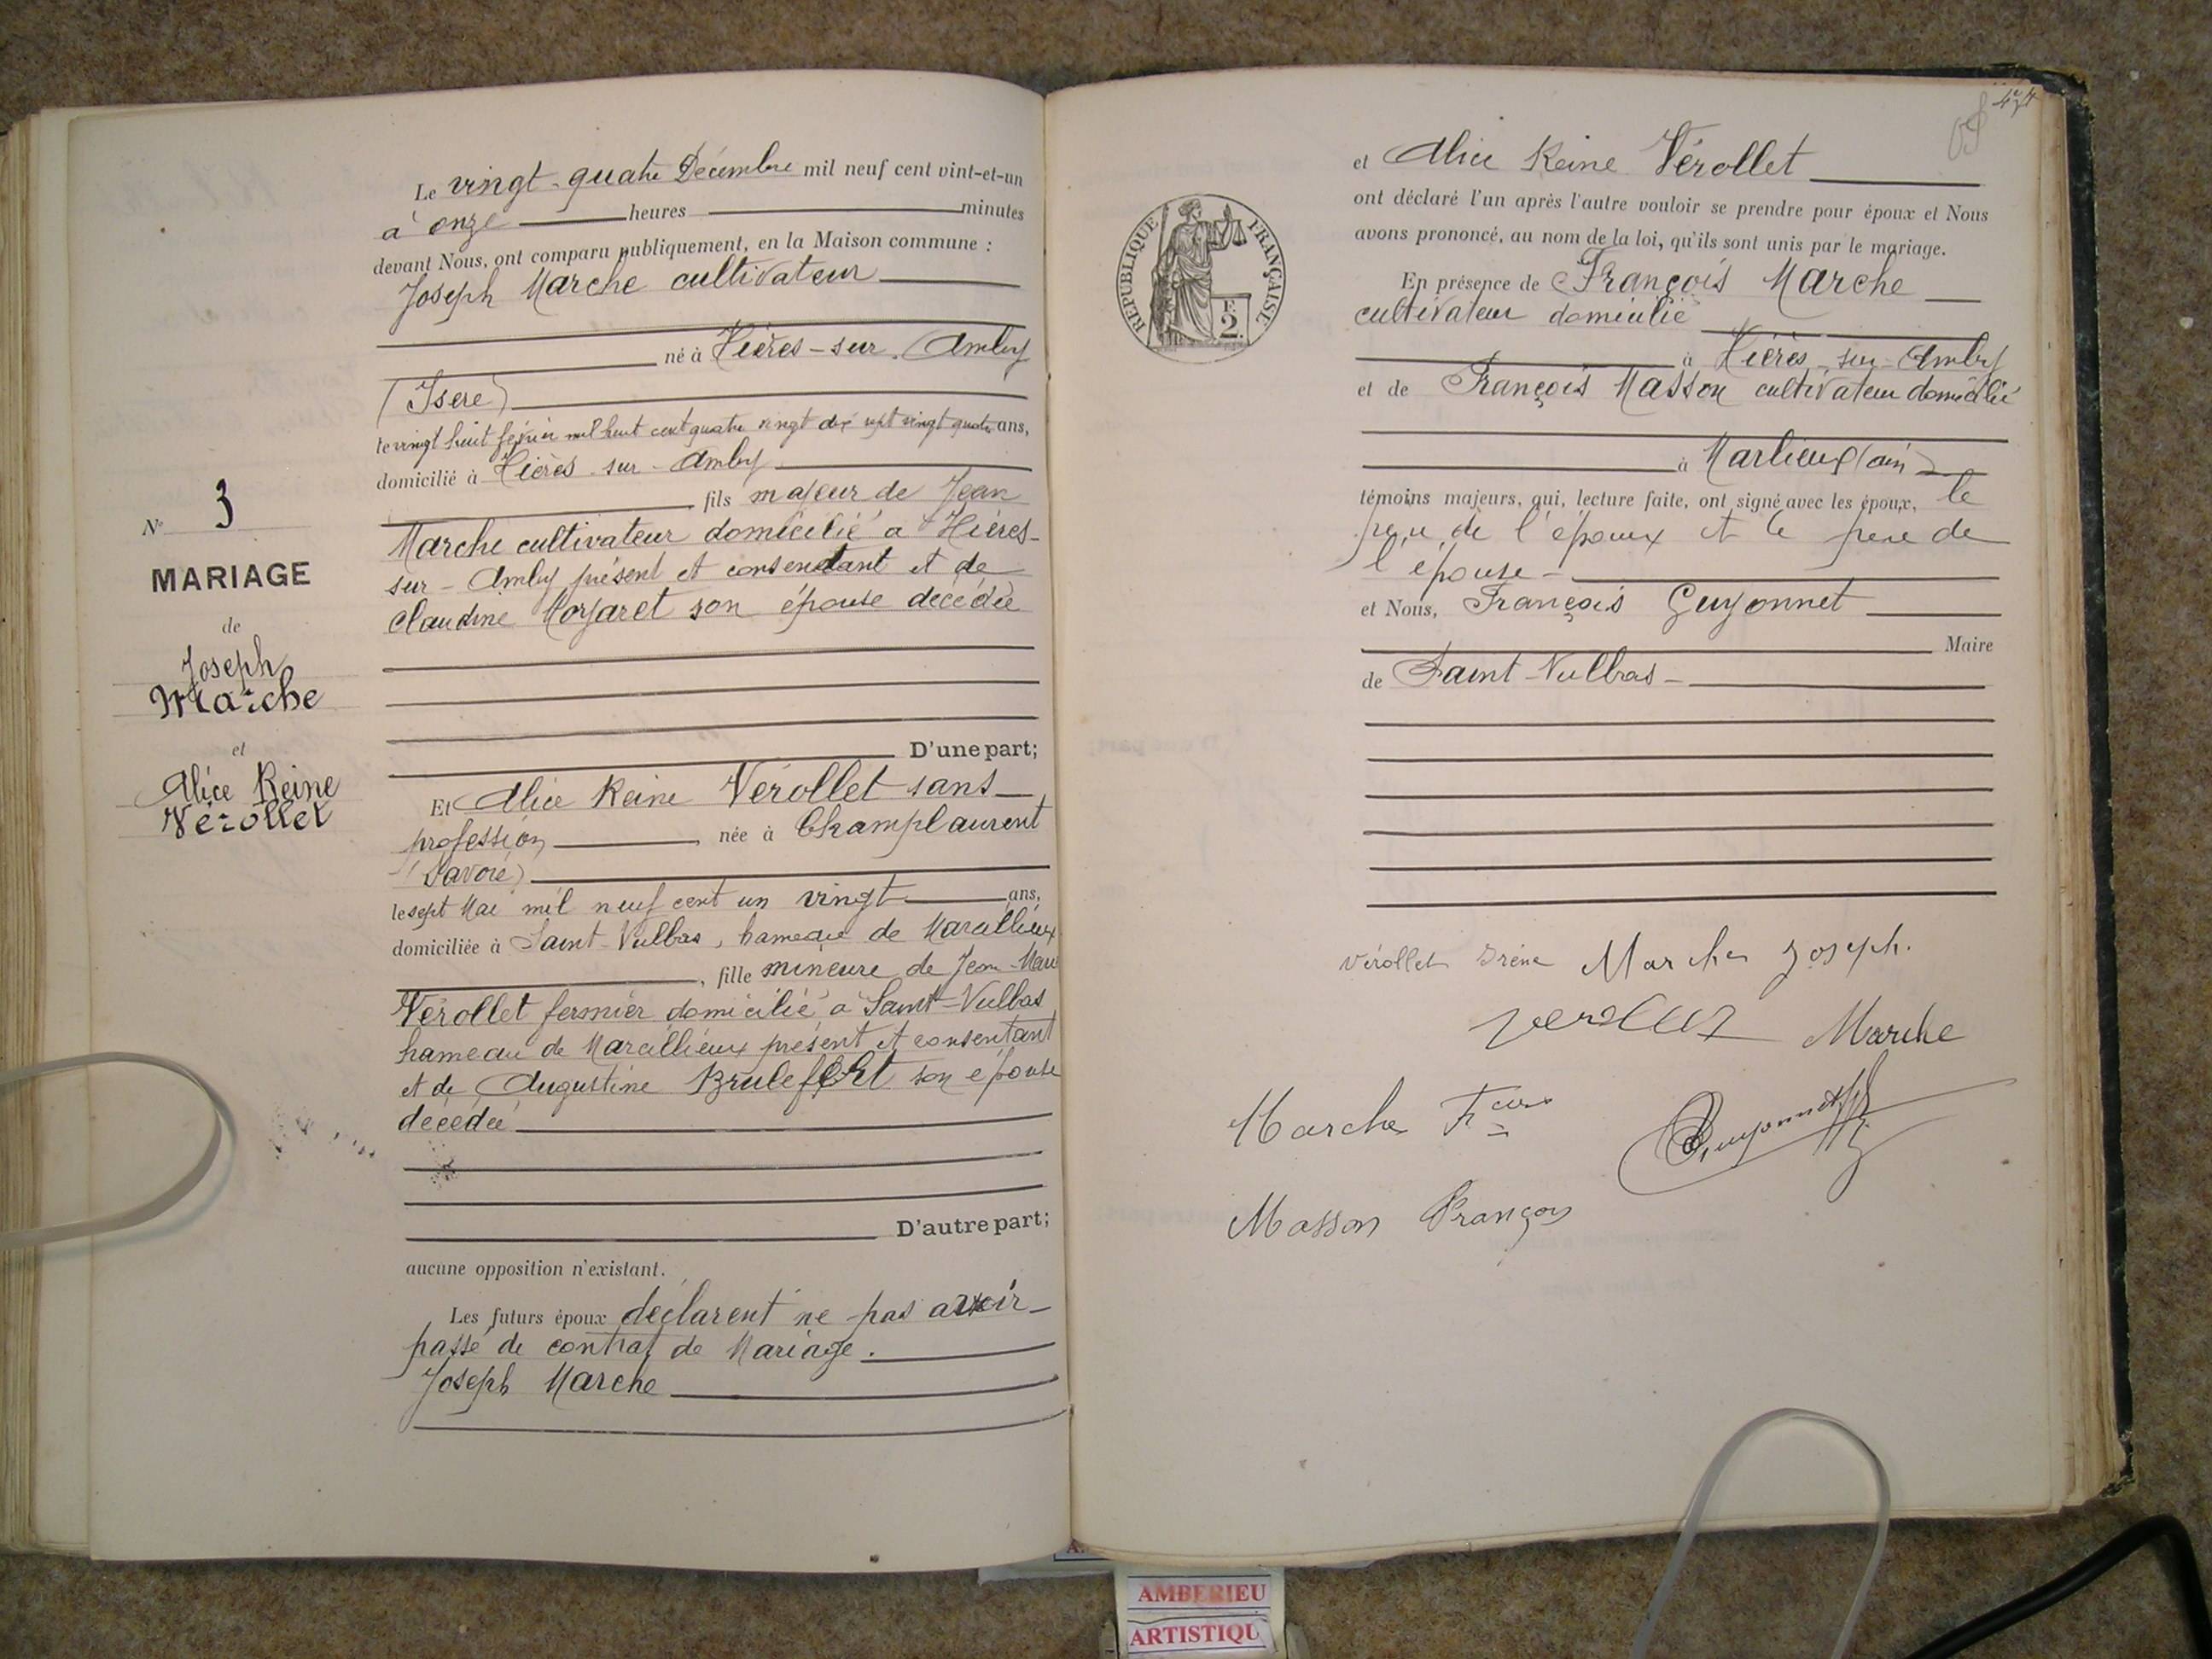 Le vingt-quatre Décembre mil neuf cent vint-et-un
à onze heures minutes
devant Nous, ont comparu publiquement, en la Maison commune :
Joseph Marche cultivateur
né à Hières-sur-Amby
(Isere)
le vingt huit février mil huit cent quatre vingt dix sept vingt quatre ans,
domicilié à Hières-sur-Amby
fils majeur de Jean
Marche cultivateur domicilié à Hières-
sur-Amby présent et consentant et de
Claudine son épouse décédée
D'une part;
N° 3
MARIAGE
de
Joseph
Marche
et
Alice Reine
Vérollet
Et Alice Reine Vérollet sans
profession, née à Champlaurent
(Savoie)
le sept Mai mil neuf cent un vingt ans,
domiciliée à Saint-Vulbas, hameau de Marcillieux
, fille mineure de Jean-Marie
Vérollet fermier domicilié à Saint-Vulbas
hameau de Marcillieux présent et consentant
et de Augustine Brulefert son épouse
décédée
D'autre part;
aucune opposition n'existant.
Les futurs époux déclarent ne pas avoir
passé de contrat de Mariage.
Joseph Marche
474
et Alice Reine Vérollet
ont déclaré l'un après l'autre vouloir se prendre pour époux et Nous
avons prononcé, au nom de la loi, qu'ils sont unis par le mariage.
RÉPUBLIQUE FRANÇAISE
F.
2.
En présence de François Marche
cultivateur domicilié
à Hières-sur-Amby
et de François Masson cultivateur domicilié
à Marlieux (ain)
témoins majeurs, qui, lecture faite, ont signé avec les époux, le
père de l'époux et le père de
l'épouse-
et Nous, François Guyonnet
Maire
de Saint-Vulbas-
Vérollet Irène Marche Joseph.
Verollet Marche
Marche Fçois
Guyonnet
Masson François
AMBERIEU
ARTISTIQU